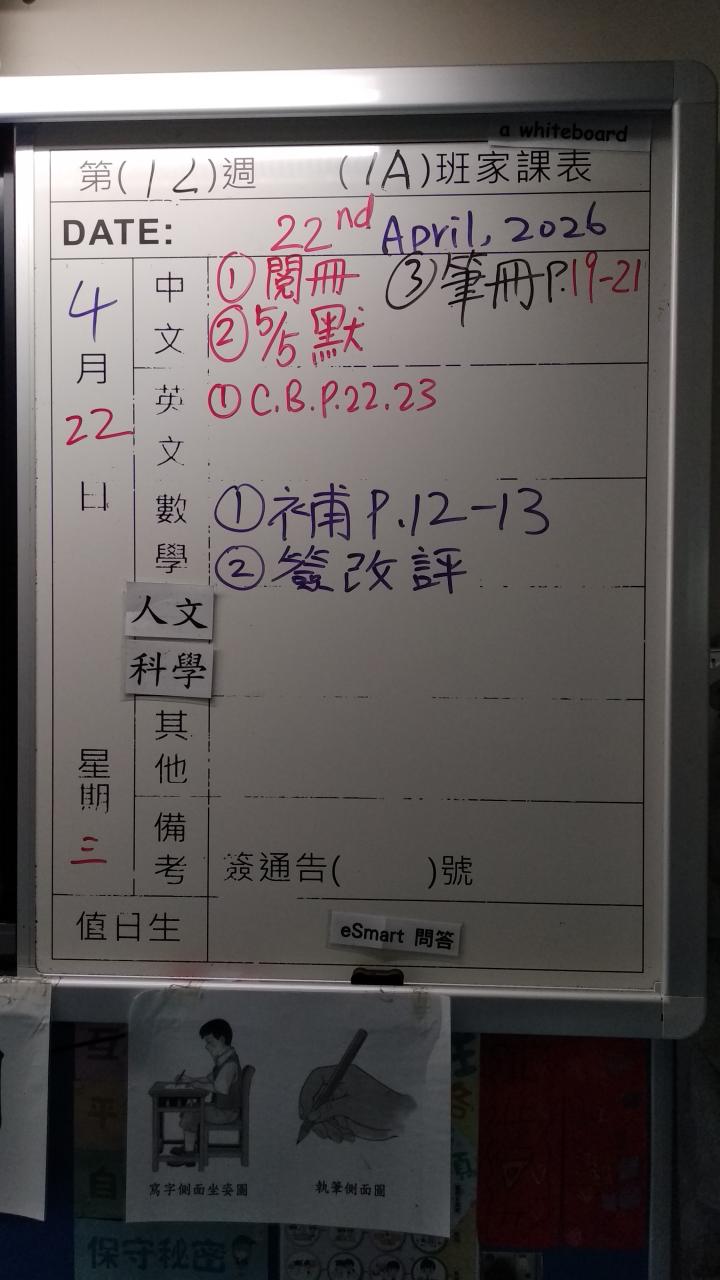 a whiteboard
第(12)週 (1A)班家課表
DATE: 22nd April, 2026
4月22日 星期三
中文 ①閱冊 ③筆冊P.19-21
②5/5默
英文 ①C.B.P.22.23
數學 ①補P.12-13
②簽改評
人文
科學
其他
備考 簽通告( )號
值日生
eSmart 問答
寫字側面坐姿圖 執筆側面圖
保守秘密